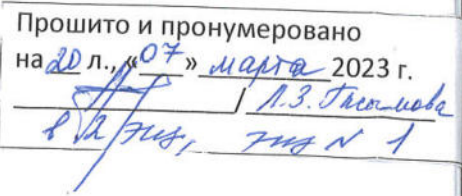 Прошито и пронумеровано
на 20 л., «07» марта 2023 г.
/ Л.З. Гасымова
в 2 экз, экз N 1